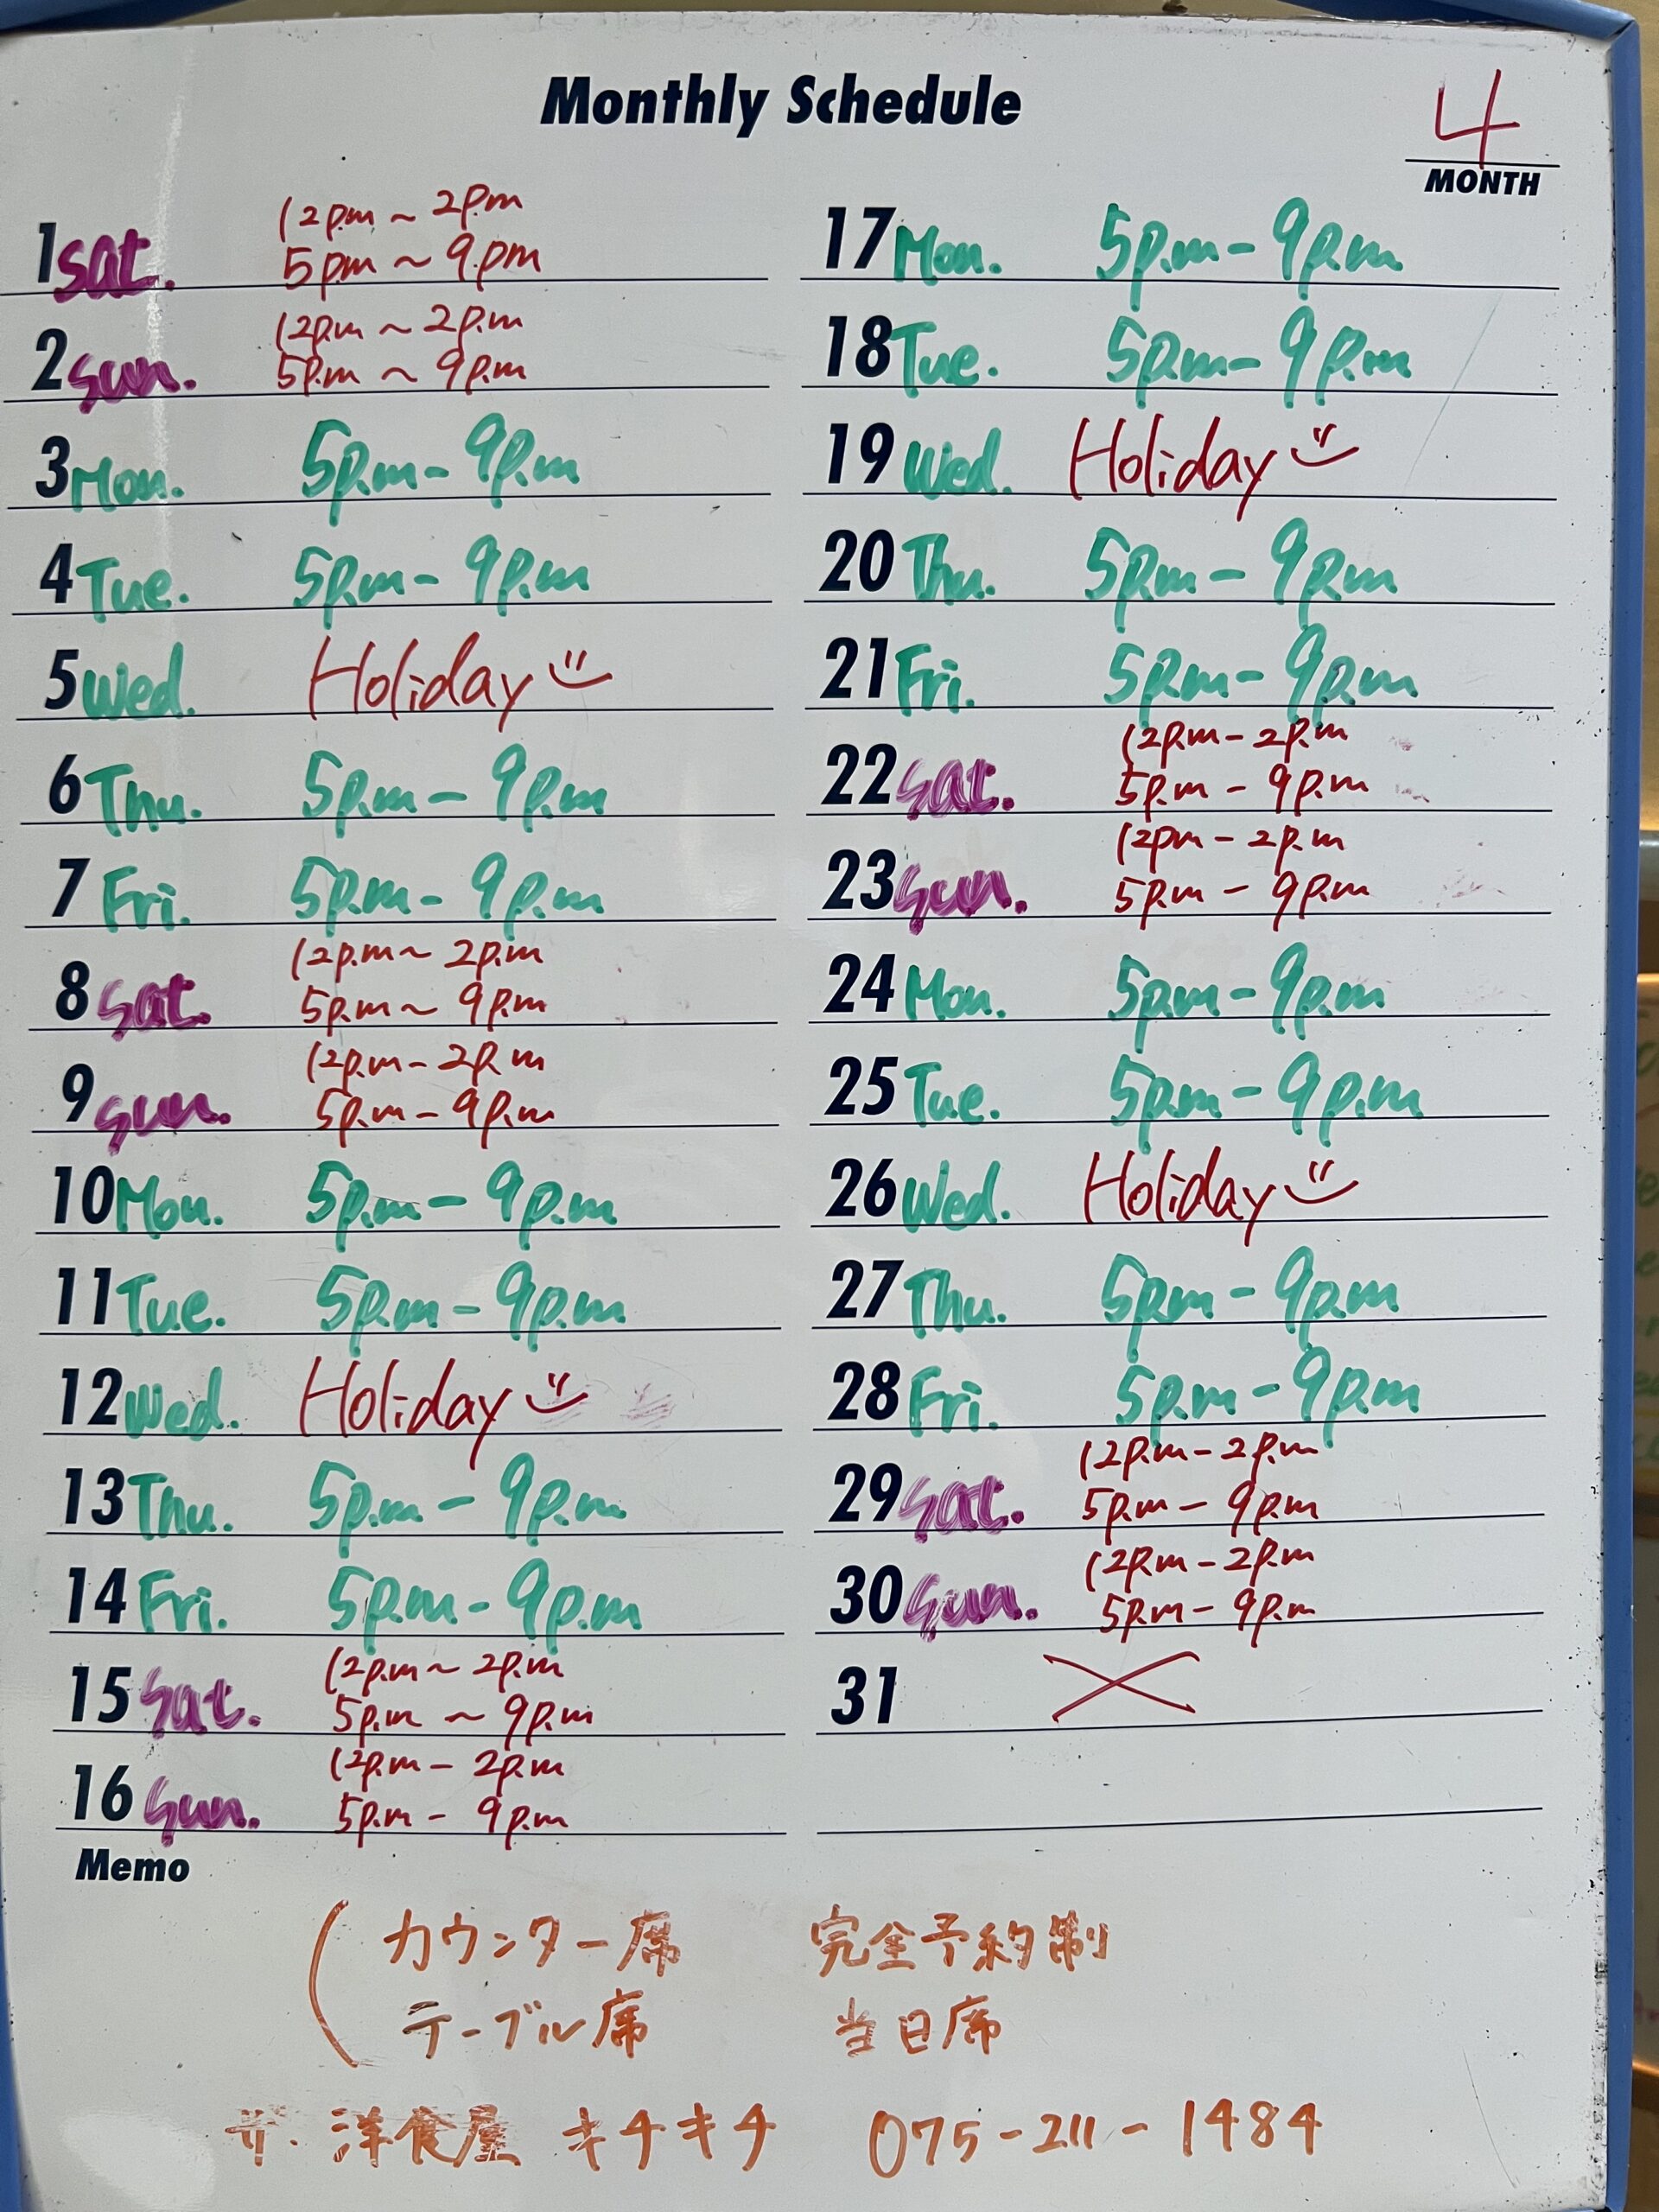 Monthly Schedule
4
MONTH
1 Sat. 12pm ~ 2pm
5pm ~ 9.pm
2 Sun. 12p.m ~ 2p.m
5p.m ~ 9p.m
3 Mon. 5p.m - 9p.m
4 Tue. 5p.m - 9p.m
5 Wed. Holiday
6 Thu. 5p.m - 9p.m
7 Fri. 5p.m - 9p.m
8 Sat. 12p.m ~ 2p.m
5p.m ~ 9p.m
9 Sun. 12p.m - 2p.m
5p.m - 9p.m
10 Mon. 5p.m - 9p.m
11 Tue. 5p.m - 9p.m
12 Wed. Holiday
13 Thu. 5p.m - 9p.m
14 Fri. 5p.m - 9p.m
15 Sat. 12p.m ~ 2p.m
5p.m ~ 9p.m
16 Sun. 12p.m - 2p.m
5p.m - 9p.m
17 Mon. 5p.m - 9p.m
18 Tue. 5p.m - 9p.m
19 Wed. Holiday
20 Thu. 5p.m - 9p.m
21 Fri. 5p.m - 9p.m
22 Sat. 12p.m - 2p.m
5p.m - 9p.m
23 Sun. 12pm - 2p.m
5p.m - 9p.m
24 Mon. 5p.m - 9p.m
25 Tue. 5p.m - 9p.m
26 Wed. Holiday
27 Thu. 5p.m - 9p.m
28 Fri. 5p.m - 9p.m
29 Sat. 12p.m - 2p.m
5p.m - 9p.m
30 Sun. 12p.m - 2p.m
5p.m - 9p.m
31
Memo
カウンター席 完全予約制
テーブル席 当日席
ザ・洋食屋 キチキチ 075-211-1484